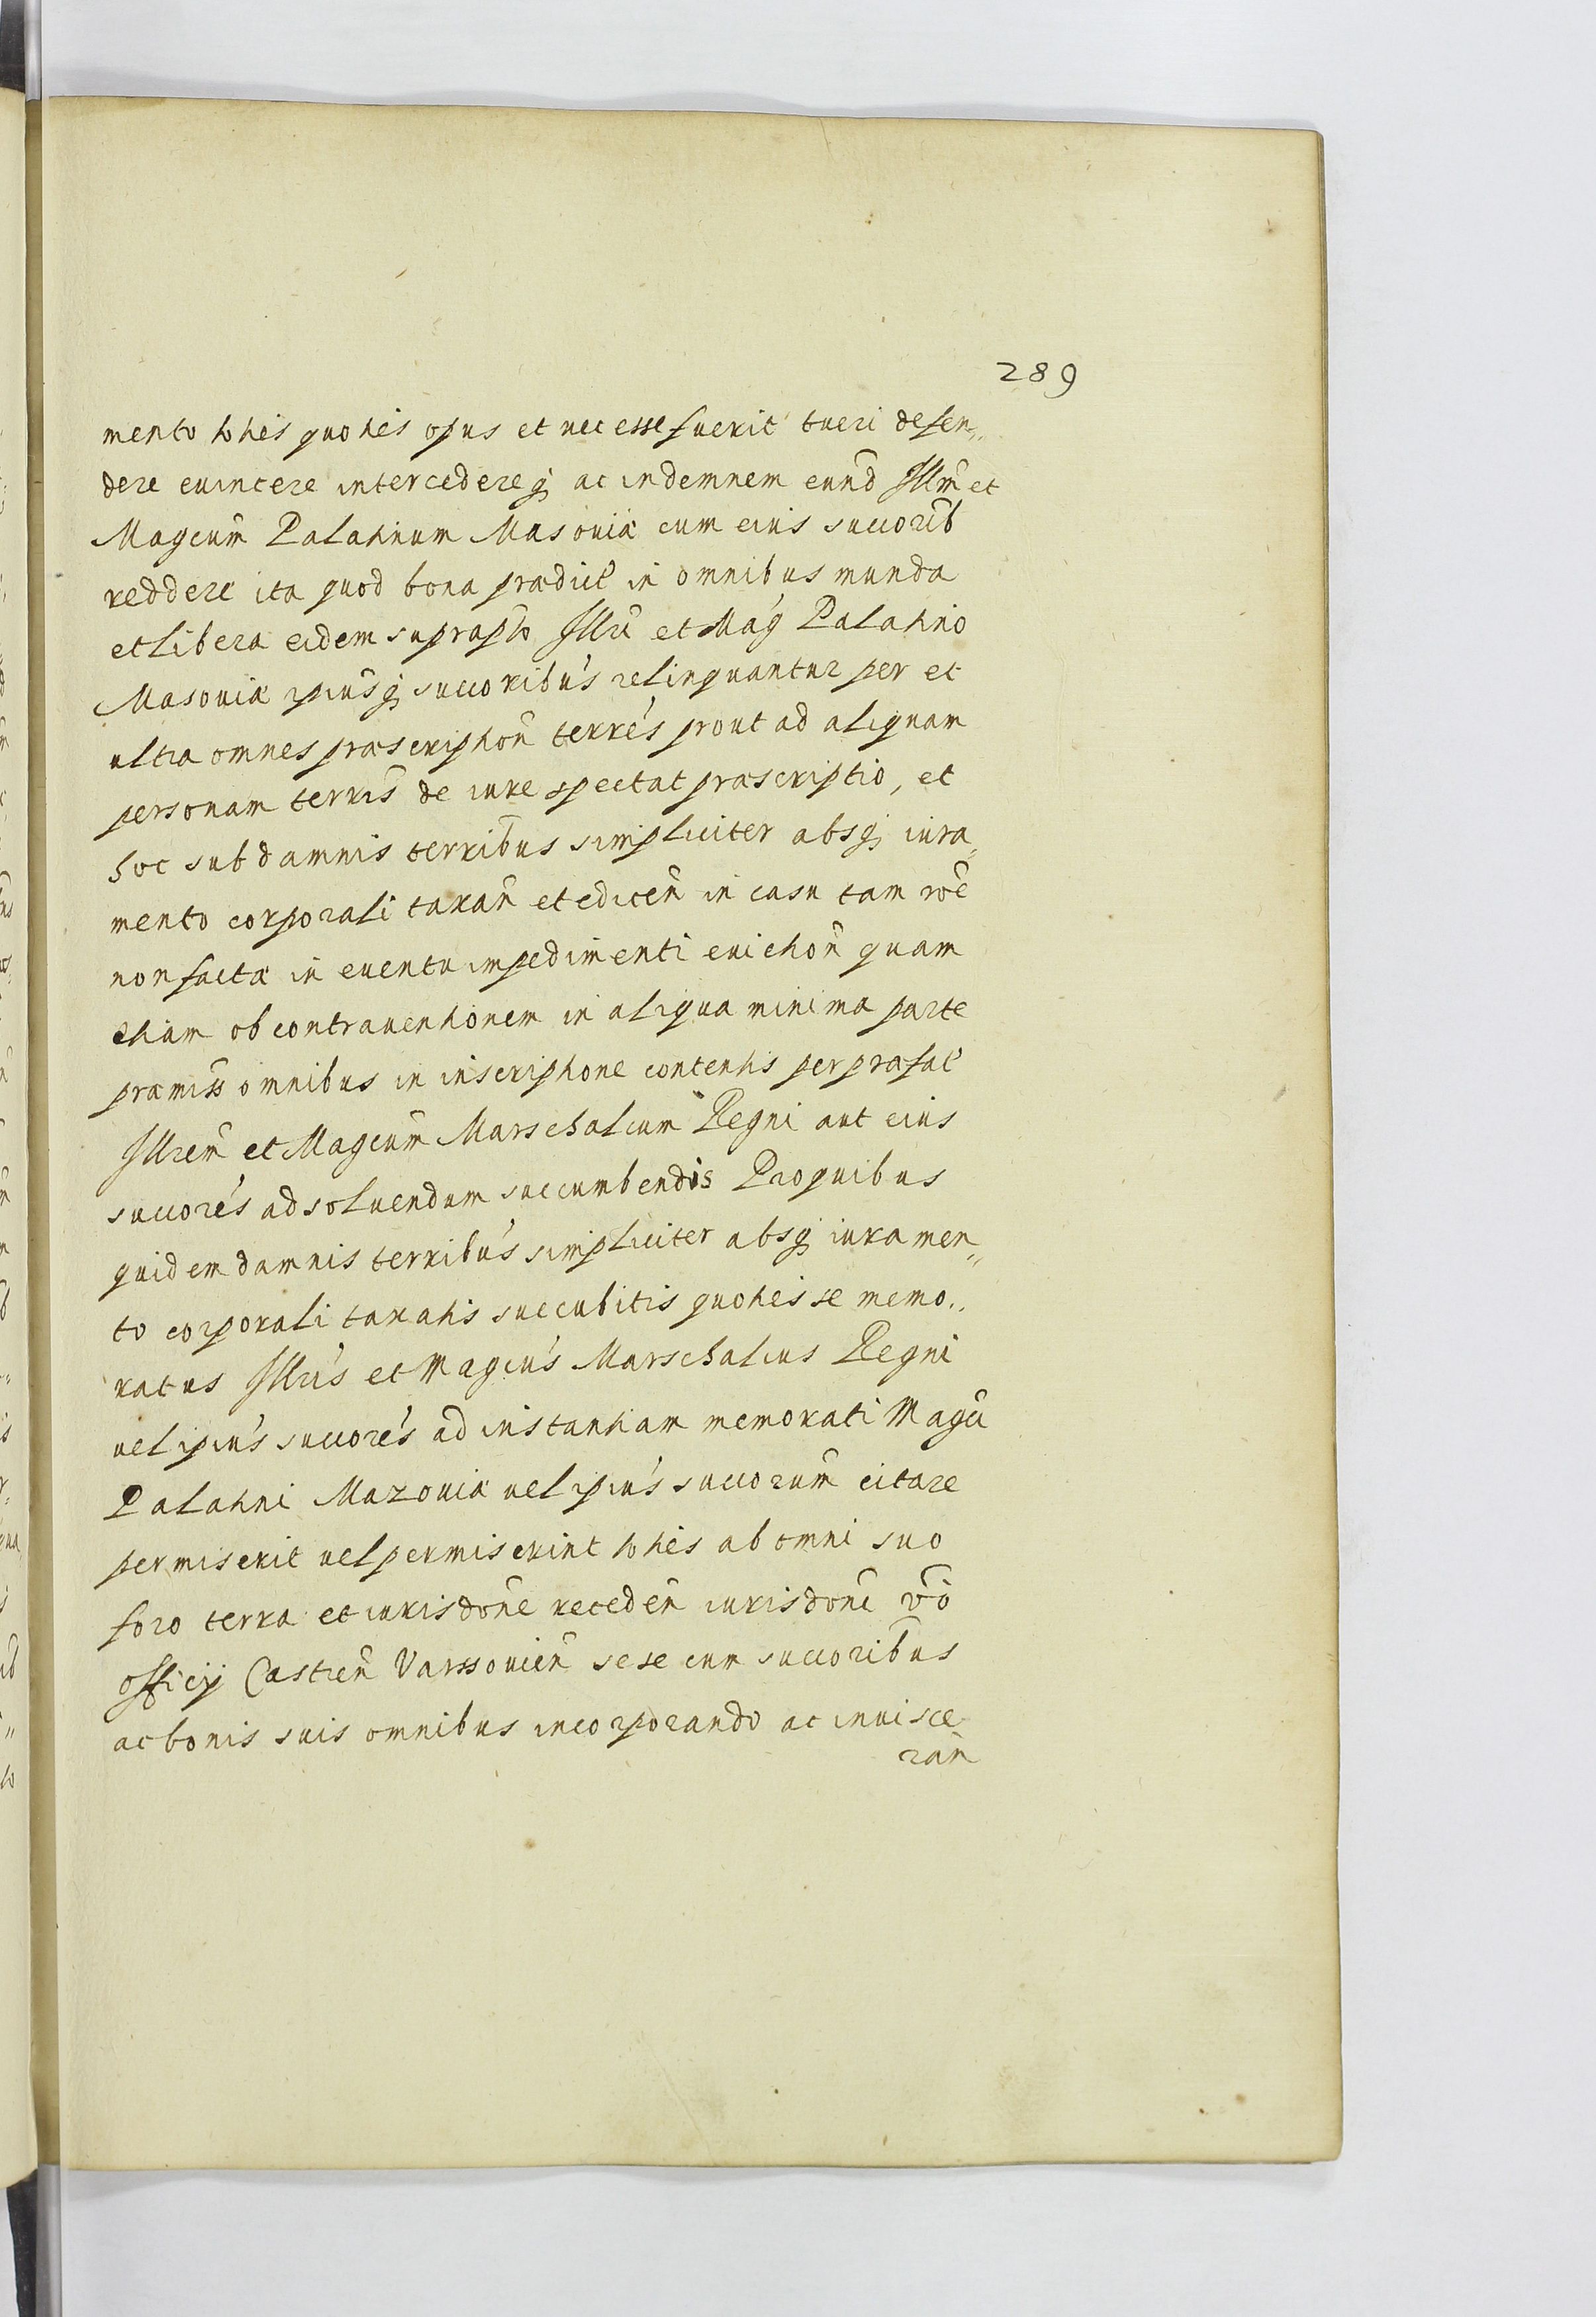 289
mento toties quoties opus et necesse fuerit tueri defen„
dere euincere intercedereq́; ac indemnem eund̃ Illm̃ et
Magcum̃ Palatinum Masouiæ cum eius succorib̃
reddere ita quod bona prædict̃ in omnibus munda
et libera eidem suprapto Illri͂ et Mag̃ Palatino
Masouiæ ipiusq́; succoribus relinquantur per et
ultra omnes præscriptioñ terres prout ad aliquam
personam terris̃ de iure spectat præscriptio, et
hoc sub damnis terribus simpliciter absq́; iura„
mento corporali taxan̄ et edicen̄ in casu tam roe̅
non factæ in euentu impedimenti euiction̄ quam
etiam ob contrauentionem in aliqua minima parte
præmiss omnibus in inscriptione contentis per præfat̃
Illrem̃ et Magcum̃ Marschalcum Regni aut eius
succores ad soluendum succumbendis Pro quibus
quidem damnis terribus simpliciter absq́; iuramen„
to corporali taxatis succubitis quoties se memo„
ratus Illris et Magcus Marschalcus Regni
uel ipius succores ad instantiam memorati Magci͂
Palatini Mazouiæ uel ipius succorum̃ citare
permiserit uel permiserint toties ab omni suo
foro terra et iurisdone̅ receden̄ iurisdoni͂ vo̅
officij Castren̄ Varssouien̄ sese cum succoribus
ac bonis suis omnibus incorporando ac inuisce„
ran̄